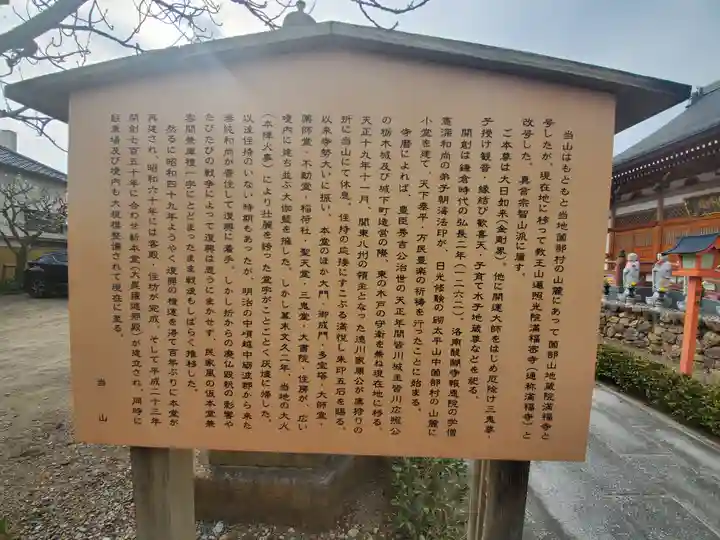 当山はもともと当地薗部村の山麓にあって薗部山地蔵院満福寺と
号したが、現在地に移って教王山遍照光院満福密寺(通称満福寺)と
改号した。真言宗智山派に属す。
ご本尊は大日如来(金剛界)。他に開運大師をはじめ厄除け三鬼尊・
子授け観音・縁結び歓喜天・子育て水子地蔵尊などを祀る。
開創は鎌倉時代の弘長二年(一二六二)。洛南醍醐寺報恩院の学僧
憲深和尚の弟子朝海法印が、日光修験の砌太平山中薗部村の山麓に
小堂を建て、天下泰平・万民豊楽の祈祷を行ったことに始まる。
寺暦によれば、豊臣秀吉公治世の天正年間皆川城主皆川広照公
の栃木城及び城下町造営の際、東の木戸の守衛を兼ね現在地に移る。
天正十九年十一月、関東八州の領主となった徳川家康公が鷹狩りの
折に当山にて休息。住持の応接にすこぶる満悦し朱印五石を賜る。
以来寺勢大いに振い、本堂のほか大門・御成門・多宝塔・大師堂・
薬師堂・不動堂・稲荷社・聖天堂・三鬼堂・大書院・住房が、広い
境内に建ち並ぶ大伽藍を擁した。しかし幕末文久二年、当地の大火
(本陣火事)により壮麗を誇った堂宇がことごとく灰燼に帰した。
以後住持のいない時期もあったが、明治の中頃越中砺波郡から来た
海純和尚が晋住して復興に着手。しかし折からの廃仏毀釈の影響や
たびたびの戦争によって復興は思うにまかせず、民家風の仮本堂兼
客間兼庫裡一宇にとどまったまま戦後もしばらく推移した。
然るに昭和四十九年ようやく復興の機運を得て百年ぶりに本堂が
再建され、昭和六十年には客殿・住坊が完成、そして平成二十三年
開創七百五十年に合わせ新本堂(大毘盧遮那殿)が建立され、同時に
駐車場及び境内も大規模整備されて現在に至る。
当山